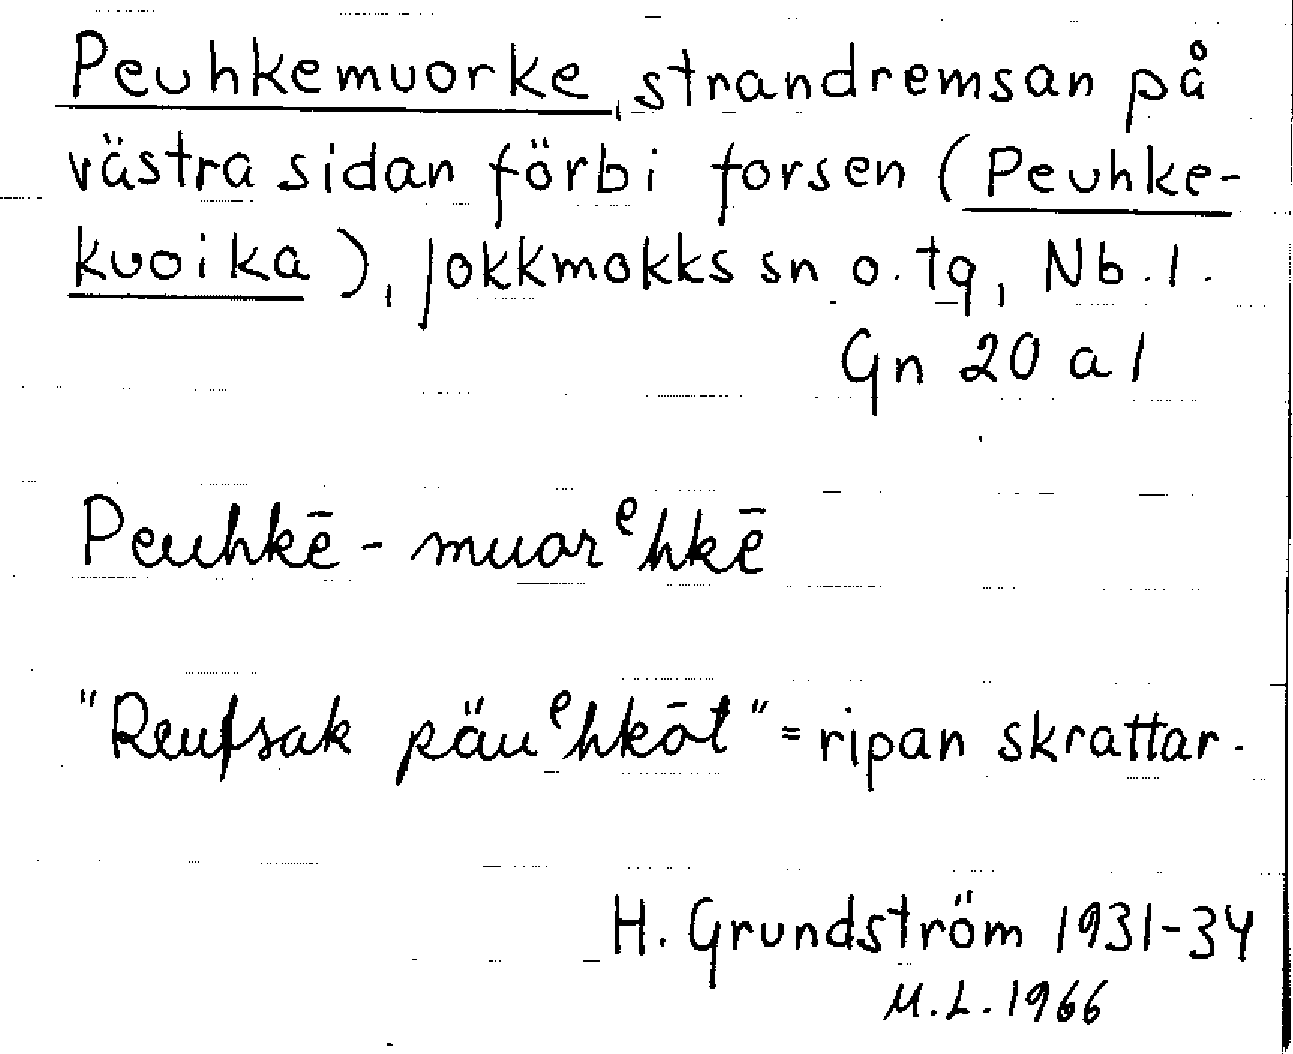 Peuhkemuorke, strandremsan på
västra sidan förbi forsen (Peuhke-
kuoika), Jokkmokks sn o. tg, Nb. l.
Gn 20 a 1
Peuhkē - muarᵉhkē
"Reufsak päuᵉhkāt" = ripan skrattar.
H. Grundström 1931-34
M.L. 1966